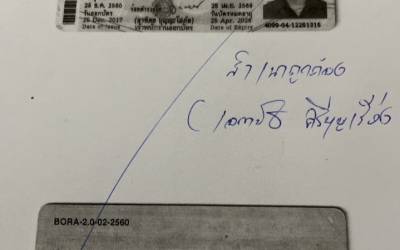 25 ธ.ค. 2560
วันออกบัตร
25 Dec. 2017
Date of Issue
เจ้าพนักงานออกบัตร
25 เม.ย. 2569
วันบัตรหมดอายุ
25 Apr. 2026
Date of Expiry
4099-04-12281316
สำเนาถูกต้อง
BORA-2.0-02-2560